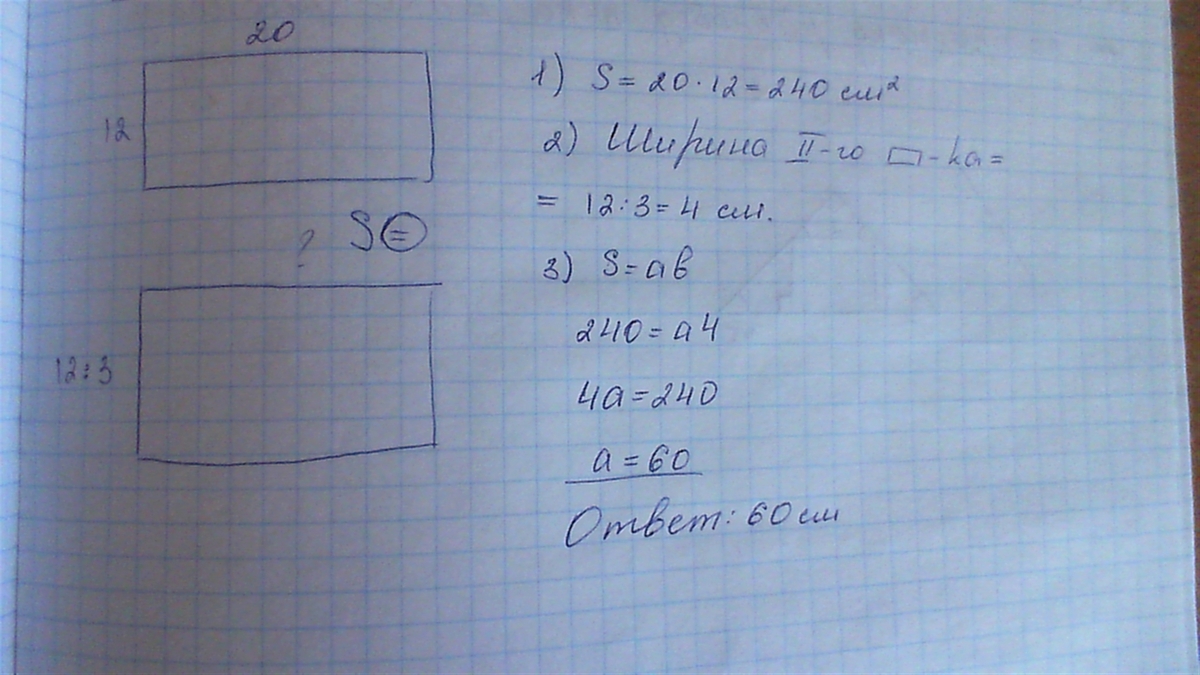 20
12
S =
?
12:3
1) S = 20 · 12 = 240 см²
2) Ширина II-го ▭-ка =
= 12:3 = 4 см.
3) S = ав
240 = а4
4а = 240
а = 60
Ответ: 60 см